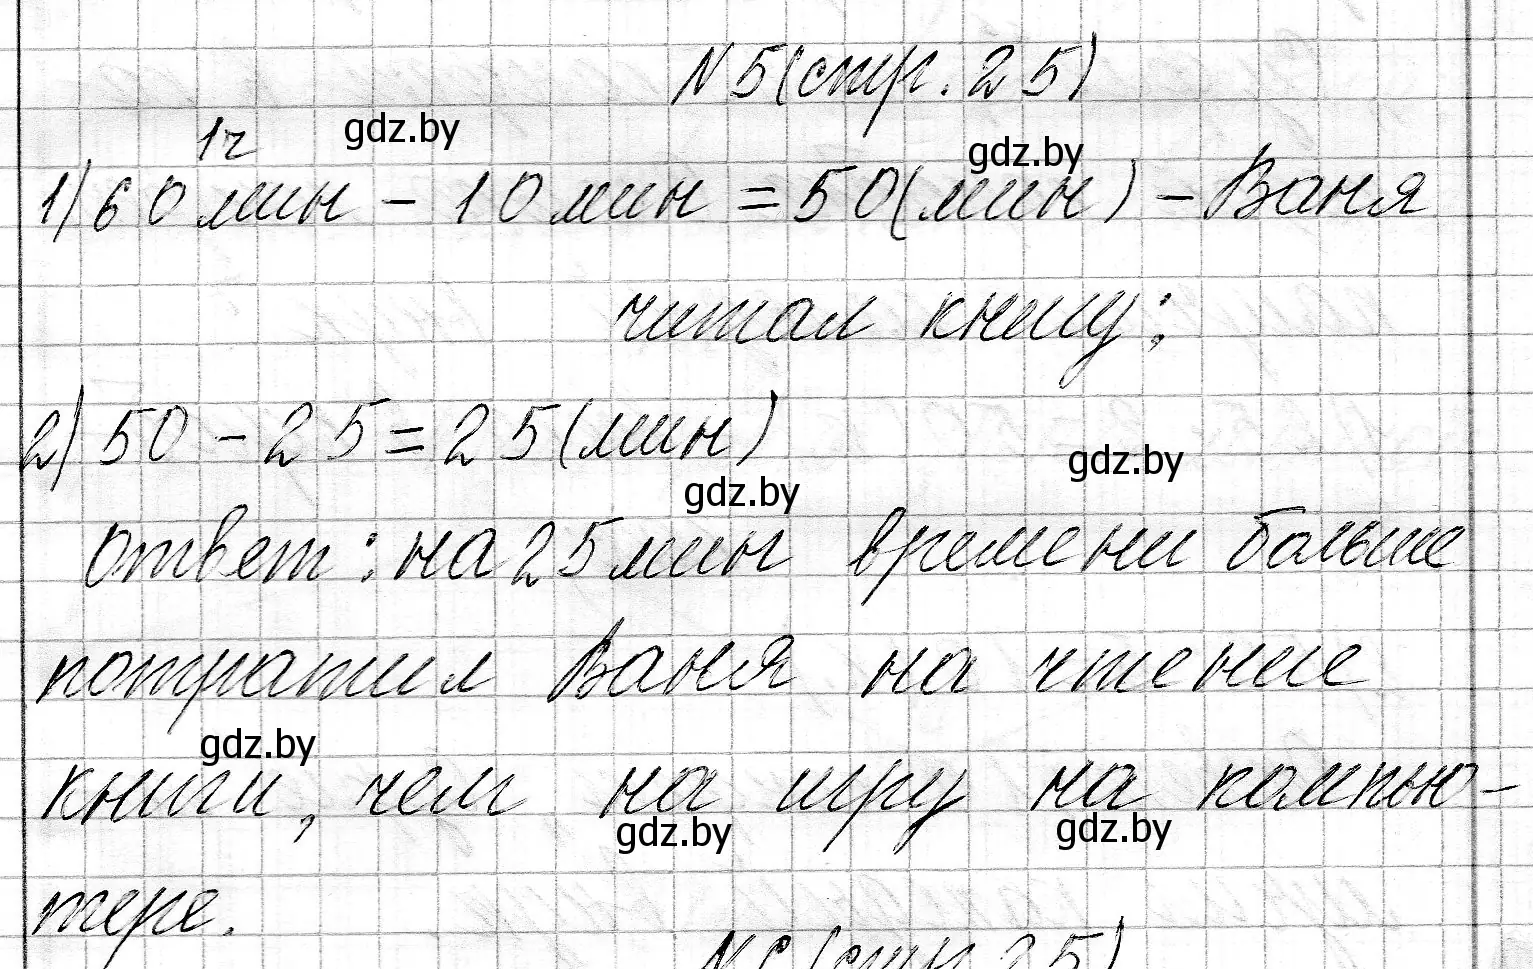 N 5 (стр. 25)
1ч gdz.by
gdz.by
1) 60 мин - 10 мин = 50 (мин) - Ваня
читал книгу;
2) 50 - 25 = 25 (мин)
gdz.by gdz.by
ответ: на 25 мин времени больше
потратил Ваня на чтение
gdz.by
книги, чем на игру на компью-
gdz.by gdz.by
тере.
(стр. 25)